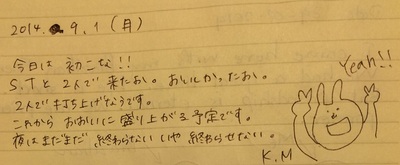 2014. 9. 1 (月)
今日は 初こな!!
S.Tと 2人で 来たお。おいしかったお。
2人で打ち上げなうです。
これから おおいに 盛り上がる予定です。
夜はまだまだ 終わらない いや 終わらせない。
Yeah!!
K.M